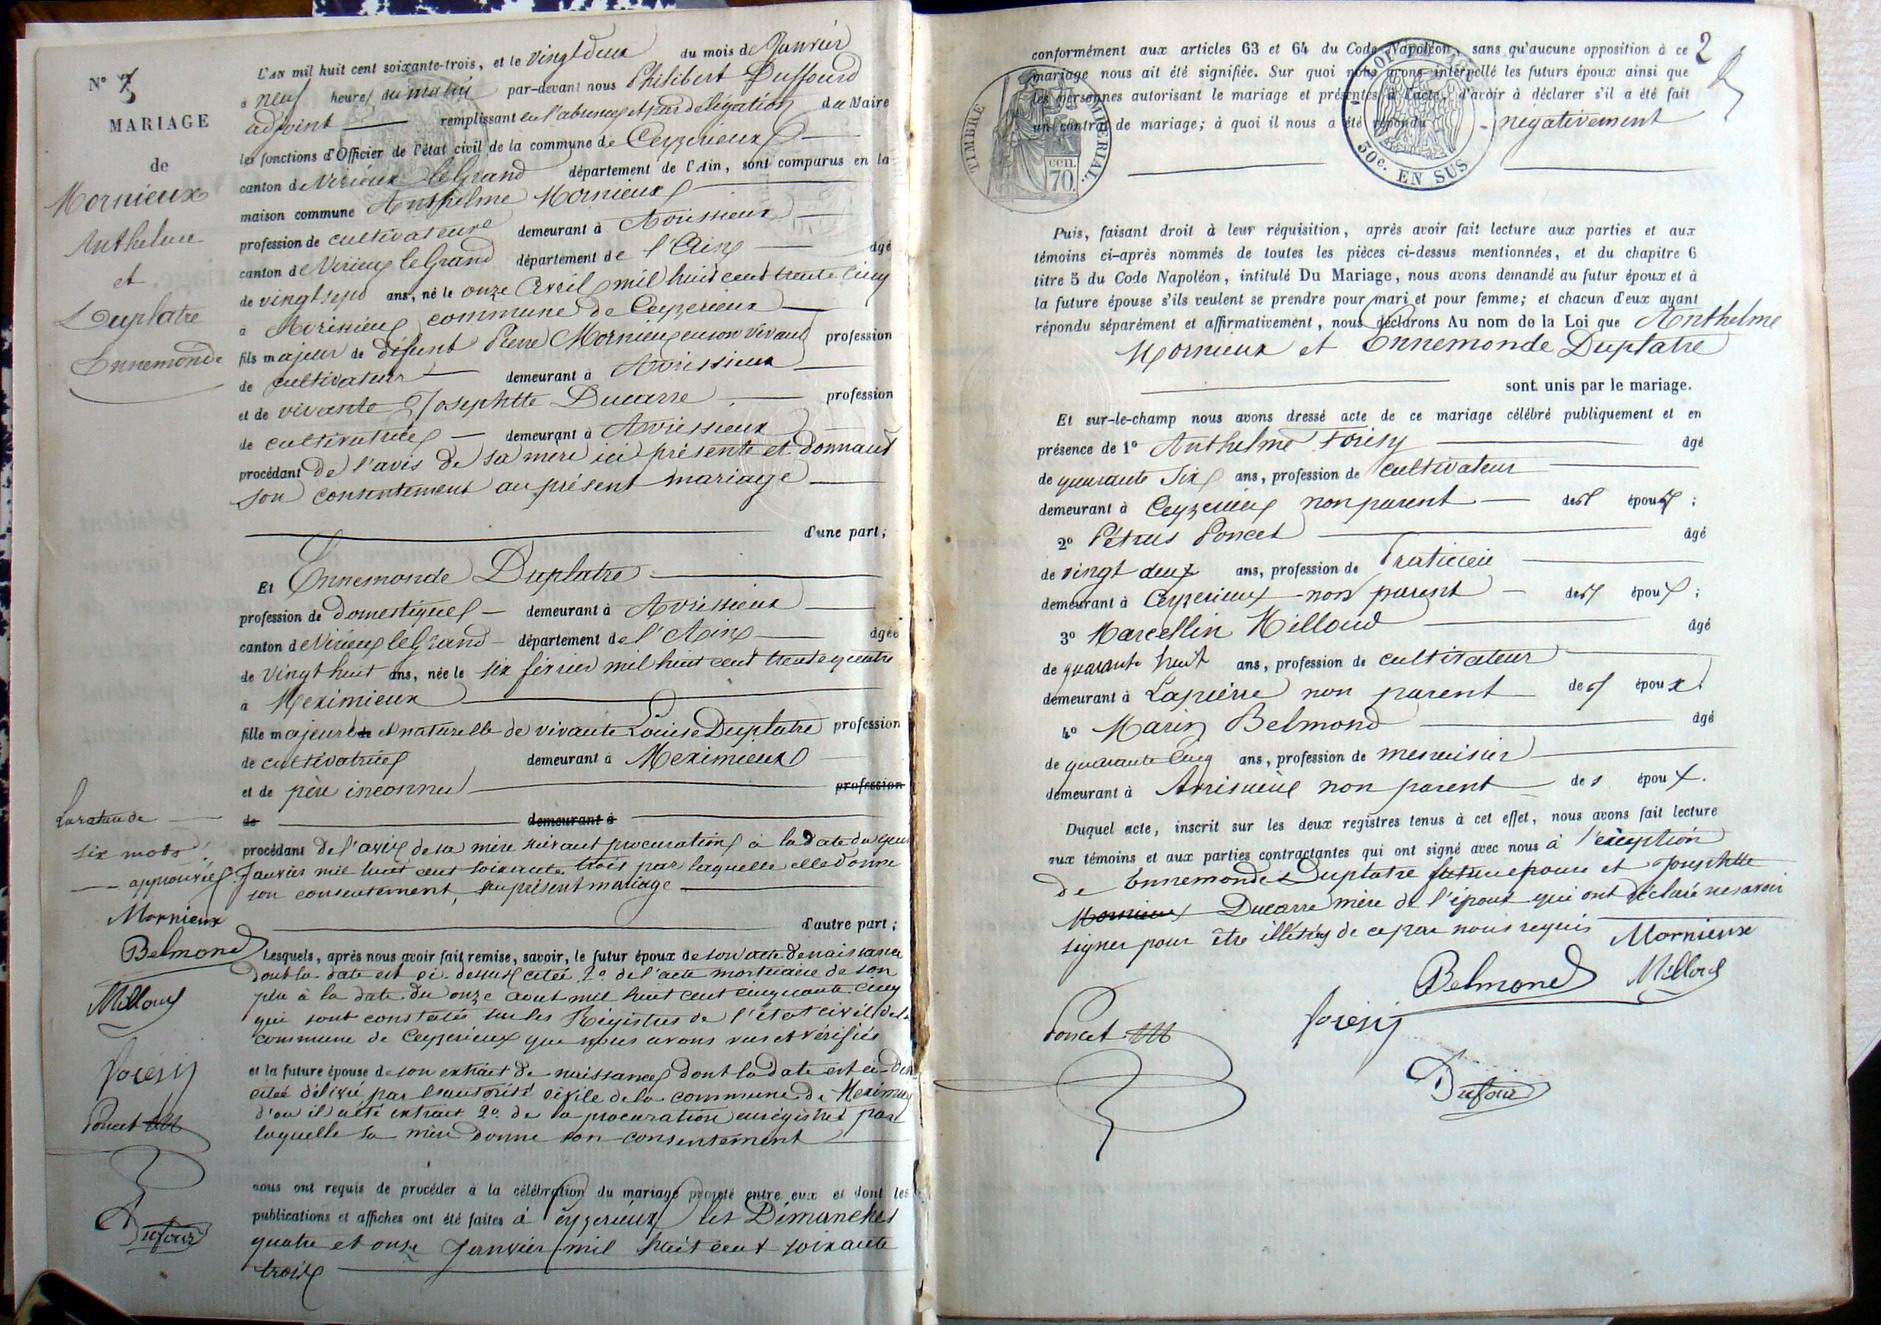 N° 3
MARIAGE
de
Mornieux
Anthelme
et
Duplatre
Ennemonde
L'AN mil huit cent soixante-trois, et le vingt deux du mois de Janvier
à neuf heures du matin par-devant nous Philibert Duffourd
adjoint remplissant en l'absence et par délégation du Maire
les fonctions d'Officier de l'état civil de la commune de Ceyzerieux
canton de Virieux le Grand département de l'Ain, sont comparus en la
maison commune Anthelme Mornieux
profession de cultivateur demeurant à Avrissieux
canton de Virieux le Grand département de l'Ain âgé
de vingt sept ans, né le onze Avril mil huit cent trente cinq
à Avrissieux commune de Ceyzerieux
fils majeur de défunt Pierre Mornieux en son vivant profession
de cultivateur demeurant à Avrissieux
et de vivante Josephtte Ducarre profession
de cultivatrice demeurant à Avrissieux
procédant de l'avis de sa mère ici présente et donnant
son consentement au présent mariage
d'une part;
Et Ennemonde Duplatre
profession de domestique demeurant à Avrissieux
canton de Virieux le Grand département de l'Ain âgée
de vingt huit ans, née le six février mil huit cent trente quatre
à Meximieux
fille majeure de et naturelle de vivante Louise Duplatre profession
de cultivatrice demeurant à Meximieux
et de père inconnu profession
de demeurant à
La rature de
six mots
approuvée
procédant de l'avis de sa mère suivant procuration à la date du
Janvier mil huit cent soixante trois par laquelle elle donne
son consentement au présent mariage
d'autre part;
Mornieux
Belmond
Milloud
Foiesy
Poncet
Dufour
Lesquels, après nous avoir fait remise, savoir, le futur époux de son acte de naissance
dont la date est ci dessus citée 2° de l'acte mortuaire de son
père à la date du onze aout mil huit cent cinquante cinq
qui sont constatés sur les Régistres de l'état civil de la
commune de Ceyzerieux que nous avons vus et vérifiés
et la future épouse de son extrait de naissance dont la date est ci-des
citée délivré par l'autorité civile de la commune de Meximieux
d'ou il a été extrait 2° de la procuration enregistrée par
laquelle sa mère donne son consentement
nous ont requis de procéder à la célébration du mariage projeté entre eux et dont les
publications et affiches ont été faites à Ceyzerieux les Dimanches
quatre et onze Janvier mil huit cent soixante
trois
2
conformément aux articles 63 et 64 du Code Napoléon, sans qu'aucune opposition à ce
mariage nous ait été signifiée. Sur quoi nous avons interpellé les futurs époux ainsi que
les personnes autorisant le mariage et présentes à l'acte, d'avoir à déclarer s'il a été fait
un contrat de mariage; à quoi il nous a été répondu négativement
TIMBRE IMPÉRIAL.
cen.
70.
50c. EN SUS
Puis, faisant droit à leur réquisition, après avoir fait lecture aux parties et aux
témoins ci-après nommés de toutes les pièces ci-dessus mentionnées, et du chapitre 6
titre 5 du Code Napoléon, intitulé Du Mariage, nous avons demandé au futur époux et à
la future épouse s'ils veulent se prendre pour mari et pour femme; et chacun d'eux ayant
répondu séparément et affirmativement, nous déclarons Au nom de la Loi que Anthelme
Mornieux et Ennemonde Duplatre
sont unis par le mariage.
Et sur-le-champ nous avons dressé acte de ce mariage célébré publiquement et en
présence de 1° Anthelme Foiesy âgé
de quarante six ans, profession de cultivateur
demeurant à Ceyzerieux non parent des époux;
2° Pétrus Poncet âgé
de vingt deux ans, profession de Praticien
demeurant à Ceyzerieux non parent des époux;
3° Marcellin Milloud âgé
de quarante huit ans, profession de cultivateur
demeurant à Lapierre non parent des époux
4° Marin Belmond âgé
de quarante cinq ans, profession de menuisier
demeurant à Avrissieux non parent des époux.
Duquel acte, inscrit sur les deux registres tenus à cet effet, nous avons fait lecture
aux témoins et aux parties contractantes qui ont signé avec nous à l'exception
de Ennemonde Duplatre future épouse et Josephtte
Mornieux Ducarre mère de l'époux qui ont déclaré ne savoir
signer pour être illétrés de ce par nous requis
Mornieux
Belmond Milloud
Poncet Foiesy
Dufour